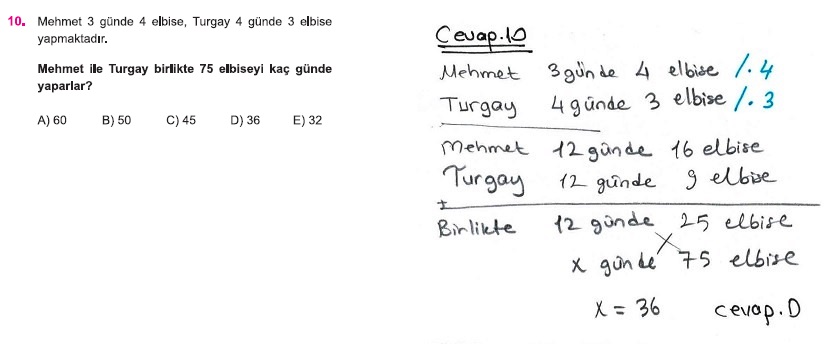 10. Mehmet 3 günde 4 elbise, Turgay 4 günde 3 elbise
yapmaktadır.
Mehmet ile Turgay birlikte 75 elbiseyi kaç günde
yaparlar?
A) 60 B) 50 C) 45 D) 36 E) 32
Cevap.10
Mehmet 3 günde 4 elbise /. 4
Turgay 4 günde 3 elbise /. 3
Mehmet 12 günde 16 elbise
Turgay 12 günde 9 elbise
+
Birlikte 12 günde 25 elbise
x günde 75 elbise
x = 36 cevap.D